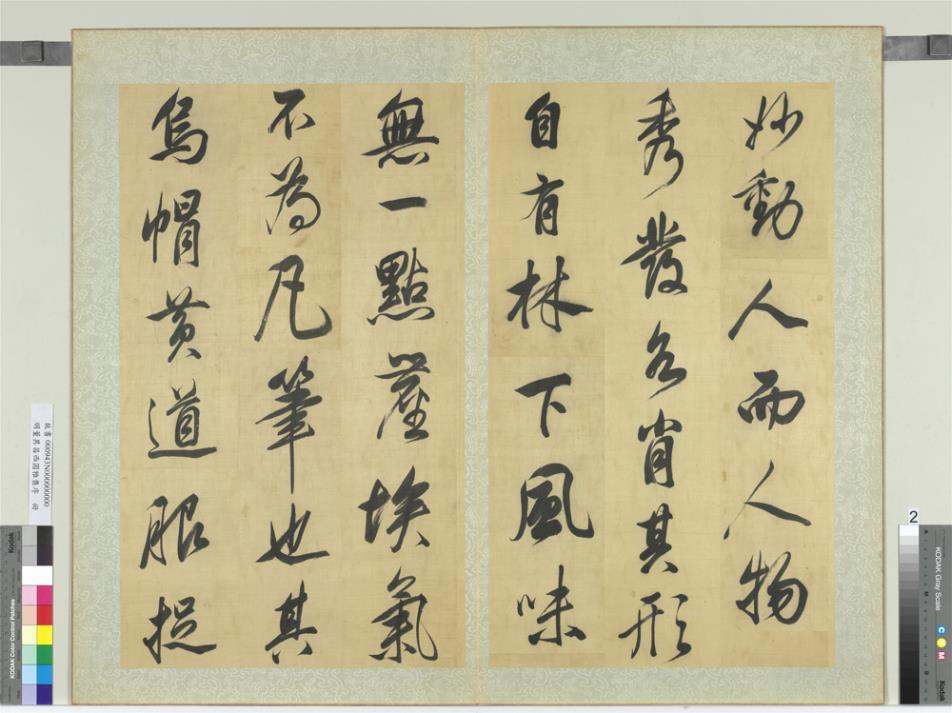 妙動人而人物
秀發各肖其形
自有林下風味
無一點塵埃氣
不為凡筆也其
烏帽黃道服捉
故書000943N000000000
明董其昌西園雅集序 冊
2
Kodak
KODAK Color Control Patches
KODAK Gray Scale
C Y M
Kodak